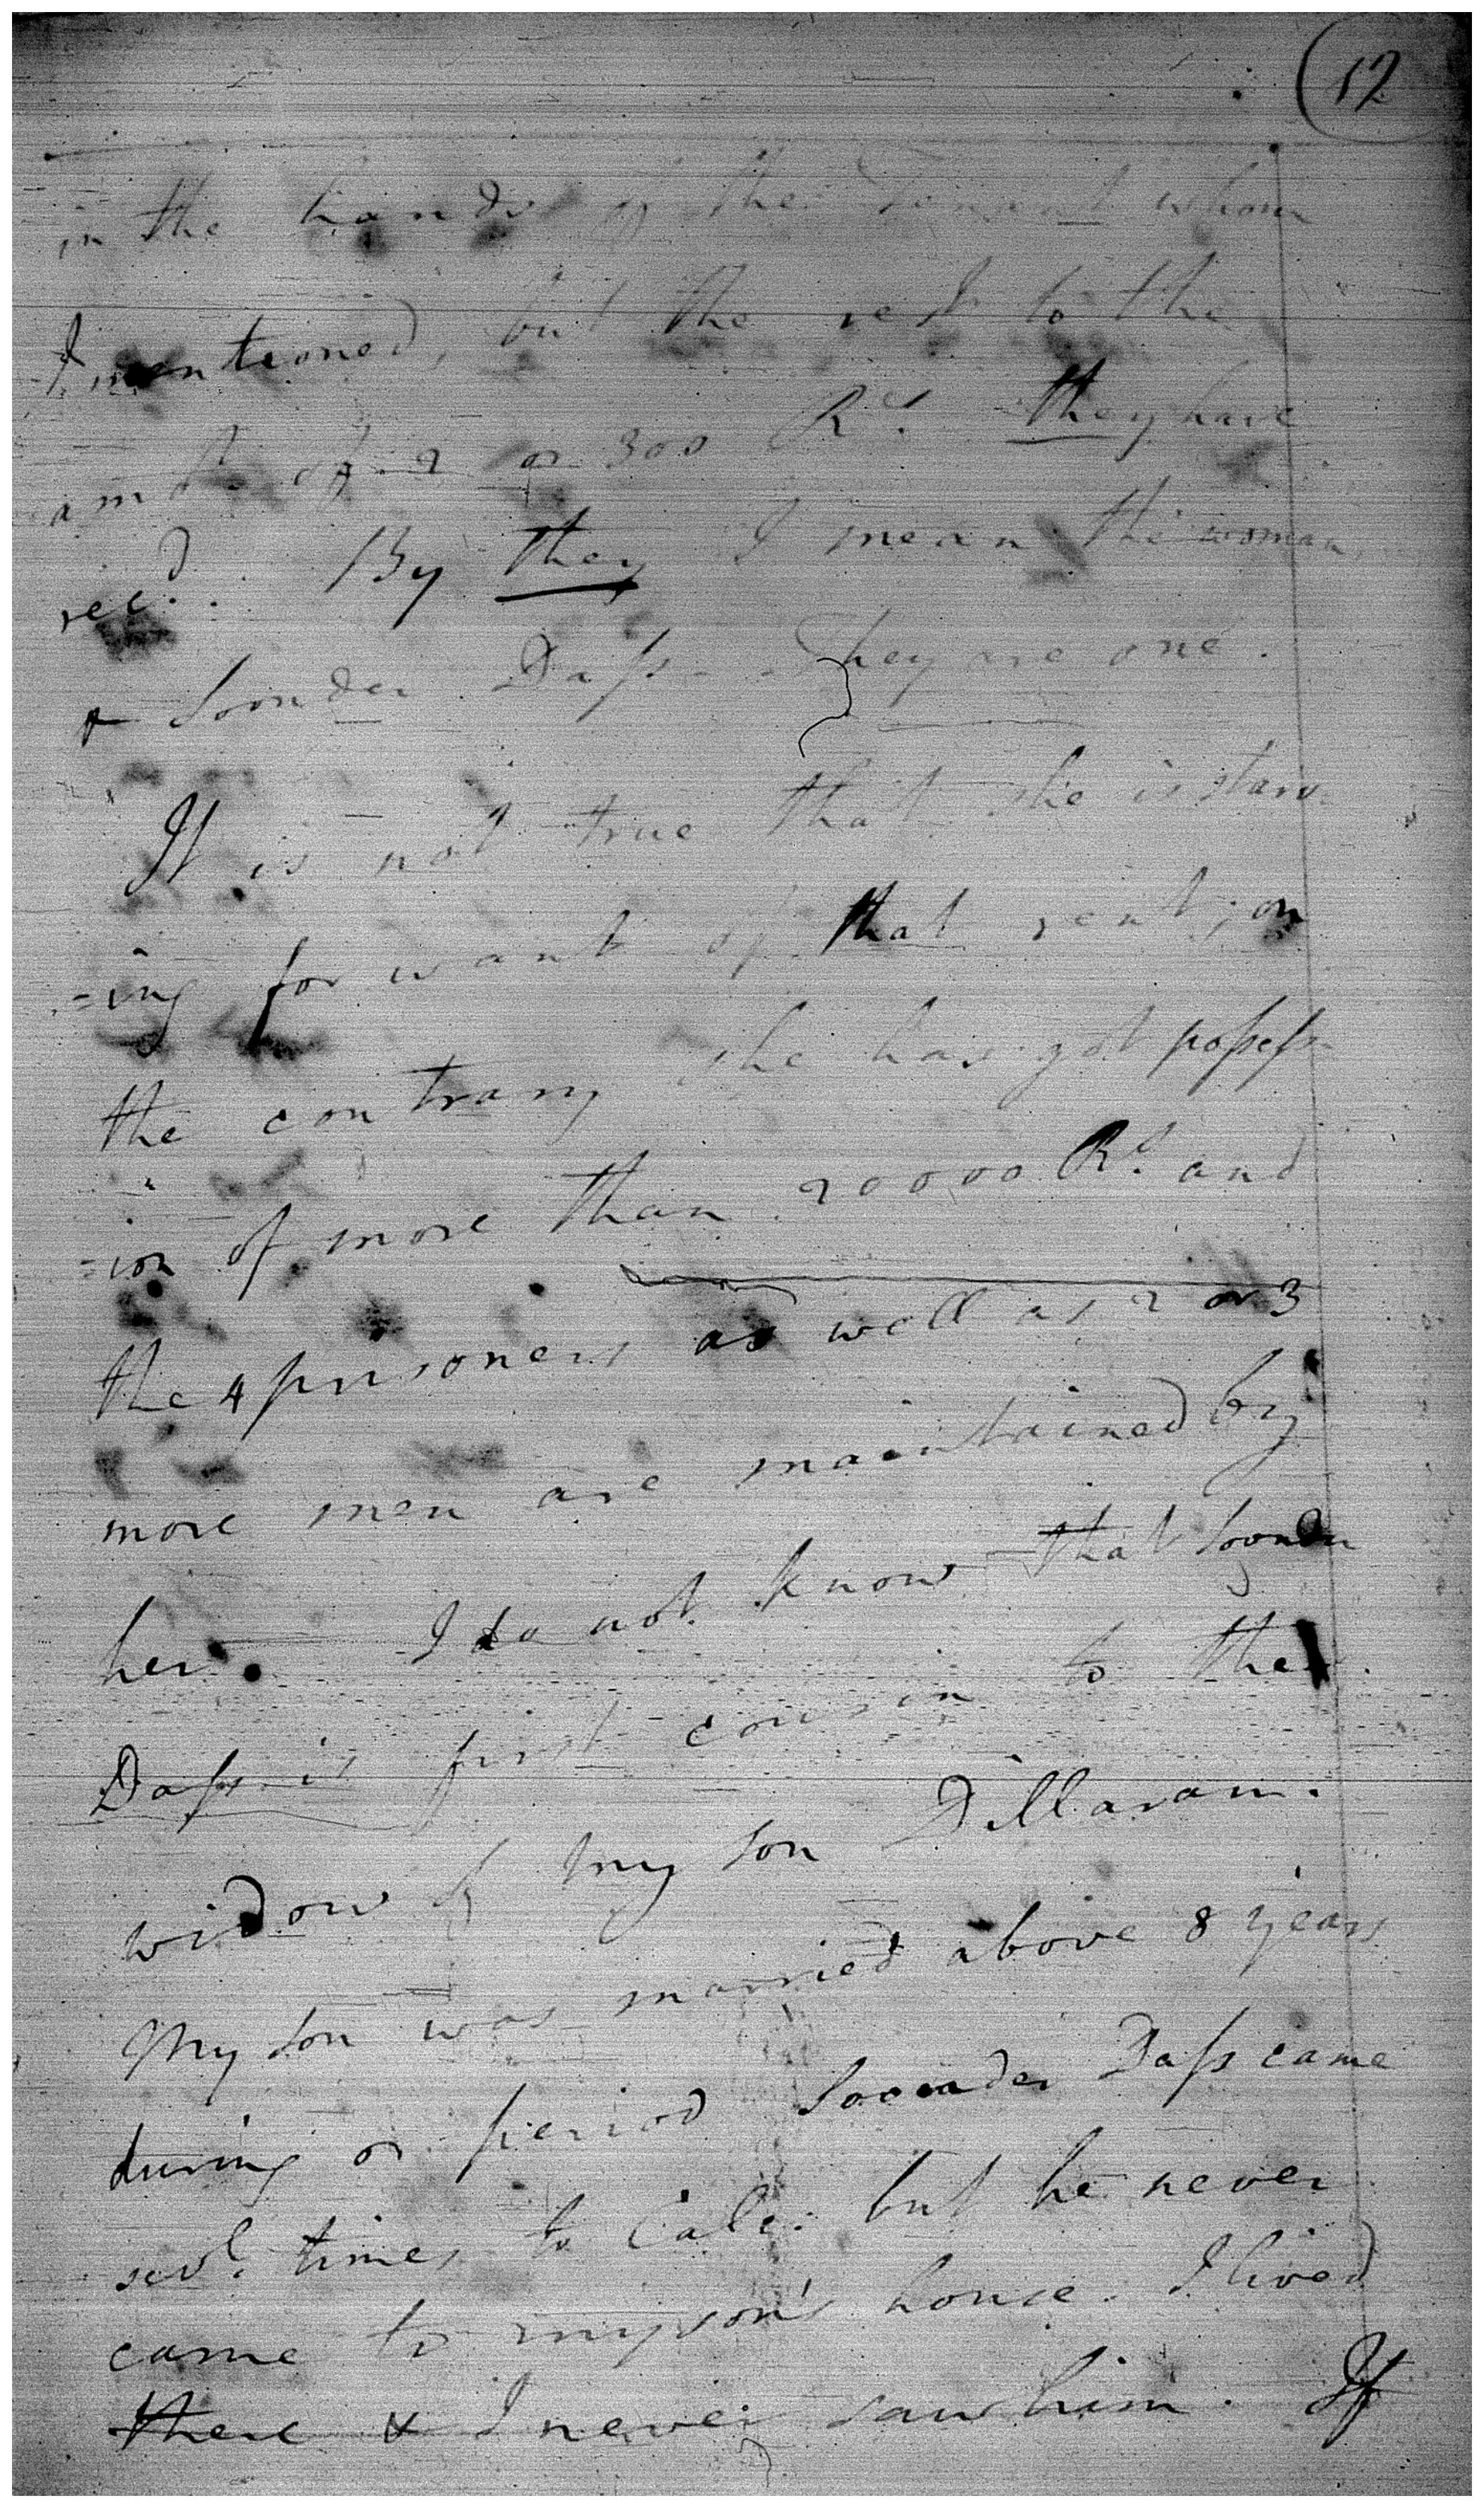 12
in the hands of the Servant whom
I mentioned, but the rest to the
amt. of 2 or 300 Rs. they have
recd. By they I mean the woman
& Soonder Dass – They are one.
It is not true that she is starv-
=ing for want of that rent; on
the contrary she has got possess-
=ion of more than 20000 Rs. and
the 4 prisoners as well as 2 or 3
more men are maintained by
her. I do not know that Soonder
Dass is first cousin to the
widow of my son Dillaram.
My son was married above 8 years
during period Soonder Dass came
sevl. times to Calc: but he never
came to my son's house. I lived
there & I never saw him. If